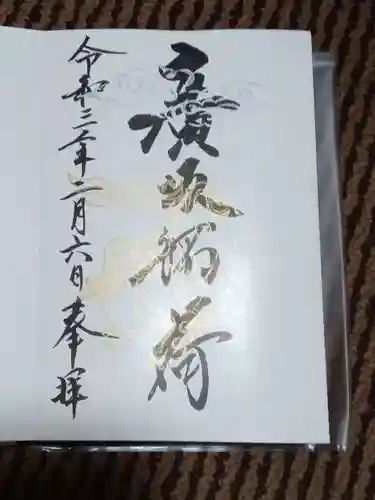 廣坂稲荷
令和三年二月六日奉拝